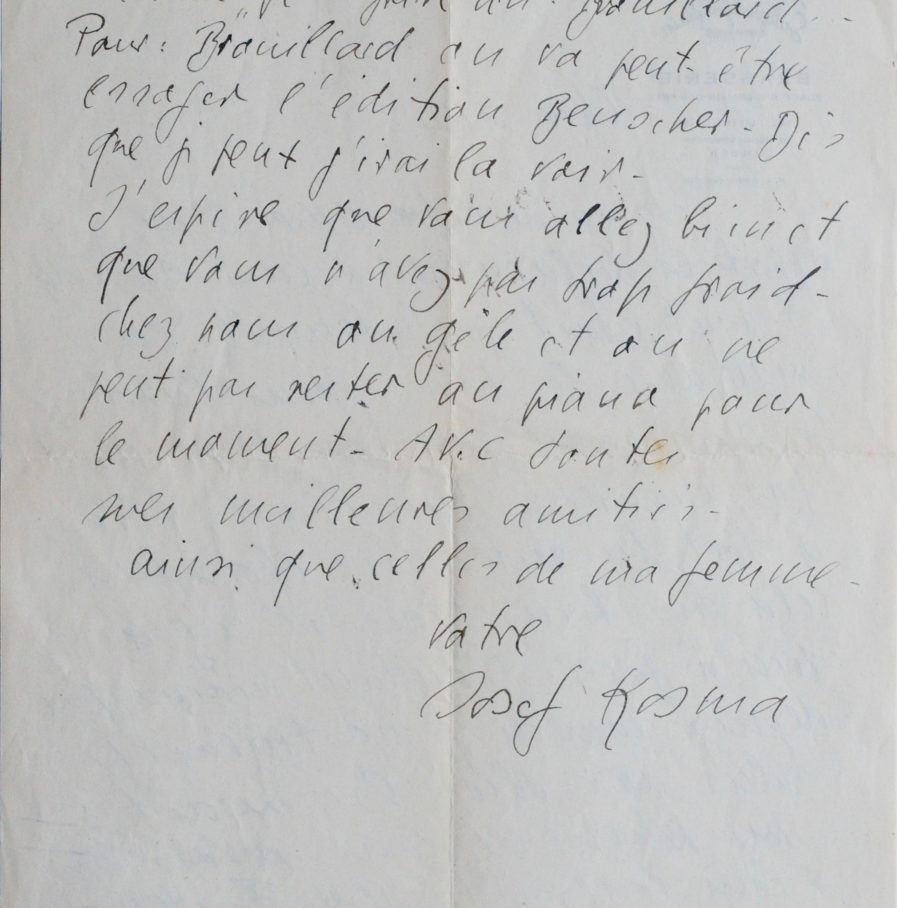 Brouillard...
Pour: Brouillard on va peut-être
essayer l'édition Beuscher. Dis
que je peux j'irai la voir-
J'espère que vous allez bien et
que vous n'avez pas trop froid-
chez nous on gèle et on ne
peut pas rester au piano pour
le moment- Avec toutes
mes meilleures amitiés-
ainsi que celles de ma femme-
Votre
Josef Kosma